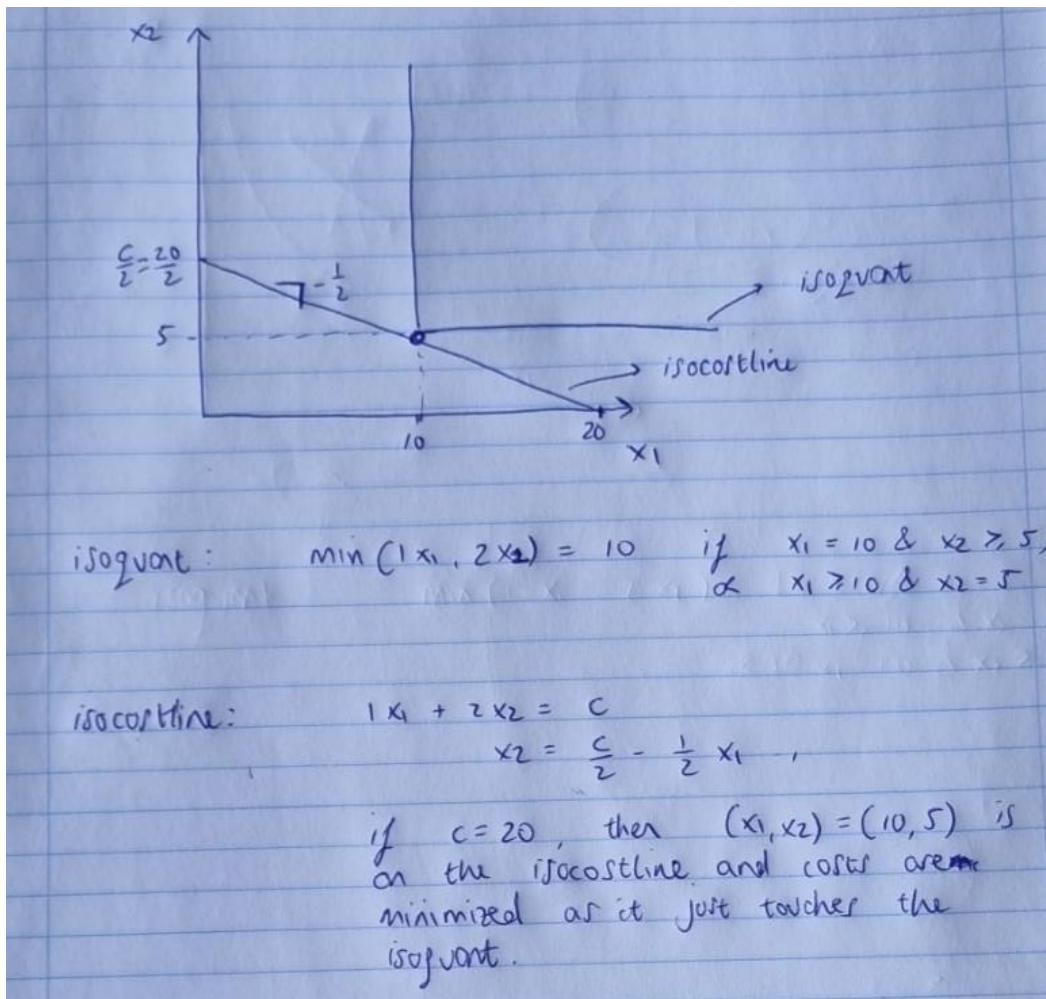 x2
c/2 = 20/2
- 1/2
isoquant
5
isocostline
10
20
x1
isoquant : min (1x1, 2x2) = 10 if x1 = 10 & x2 ≥ 5,
or x1 ≥ 10 & x2 = 5
isocostline: 1x1 + 2x2 = c
x2 = c/2 - 1/2 x1 ,
if c = 20, then (x1, x2) = (10, 5) is
on the isocostline and costs are
minimized as it just touches the
isoquant.